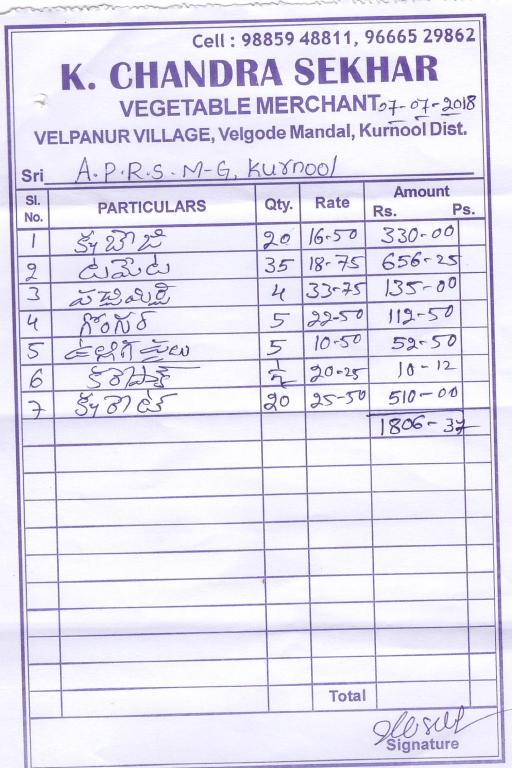 Cell : 98859 48811, 96665 29862
K. CHANDRA SEKHAR
VEGETABLE MERCHANT 07-07-2018
VELPANUR VILLAGE, Velgode Mandal, Kurnool Dist.
Sri A.P.R.S.M-G, Kurnool
Sl. No. PARTICULARS Qty. Rate Amount Rs. Ps.
1 క్యాబేజి 20 16-50 330-00
2 టమేట 35 18-75 656-25
3 పచ్చిమిర్చి 4 33-75 135-00
4 గోంగుర 5 22-50 112-50
5 ఉల్లిగడ్డలు 5 10-50 52-50
6 కరెపాక్ ½ 20-25 10-12
7 క్యారెట్ 20 25-50 510-00
1806-37
Total
Signature